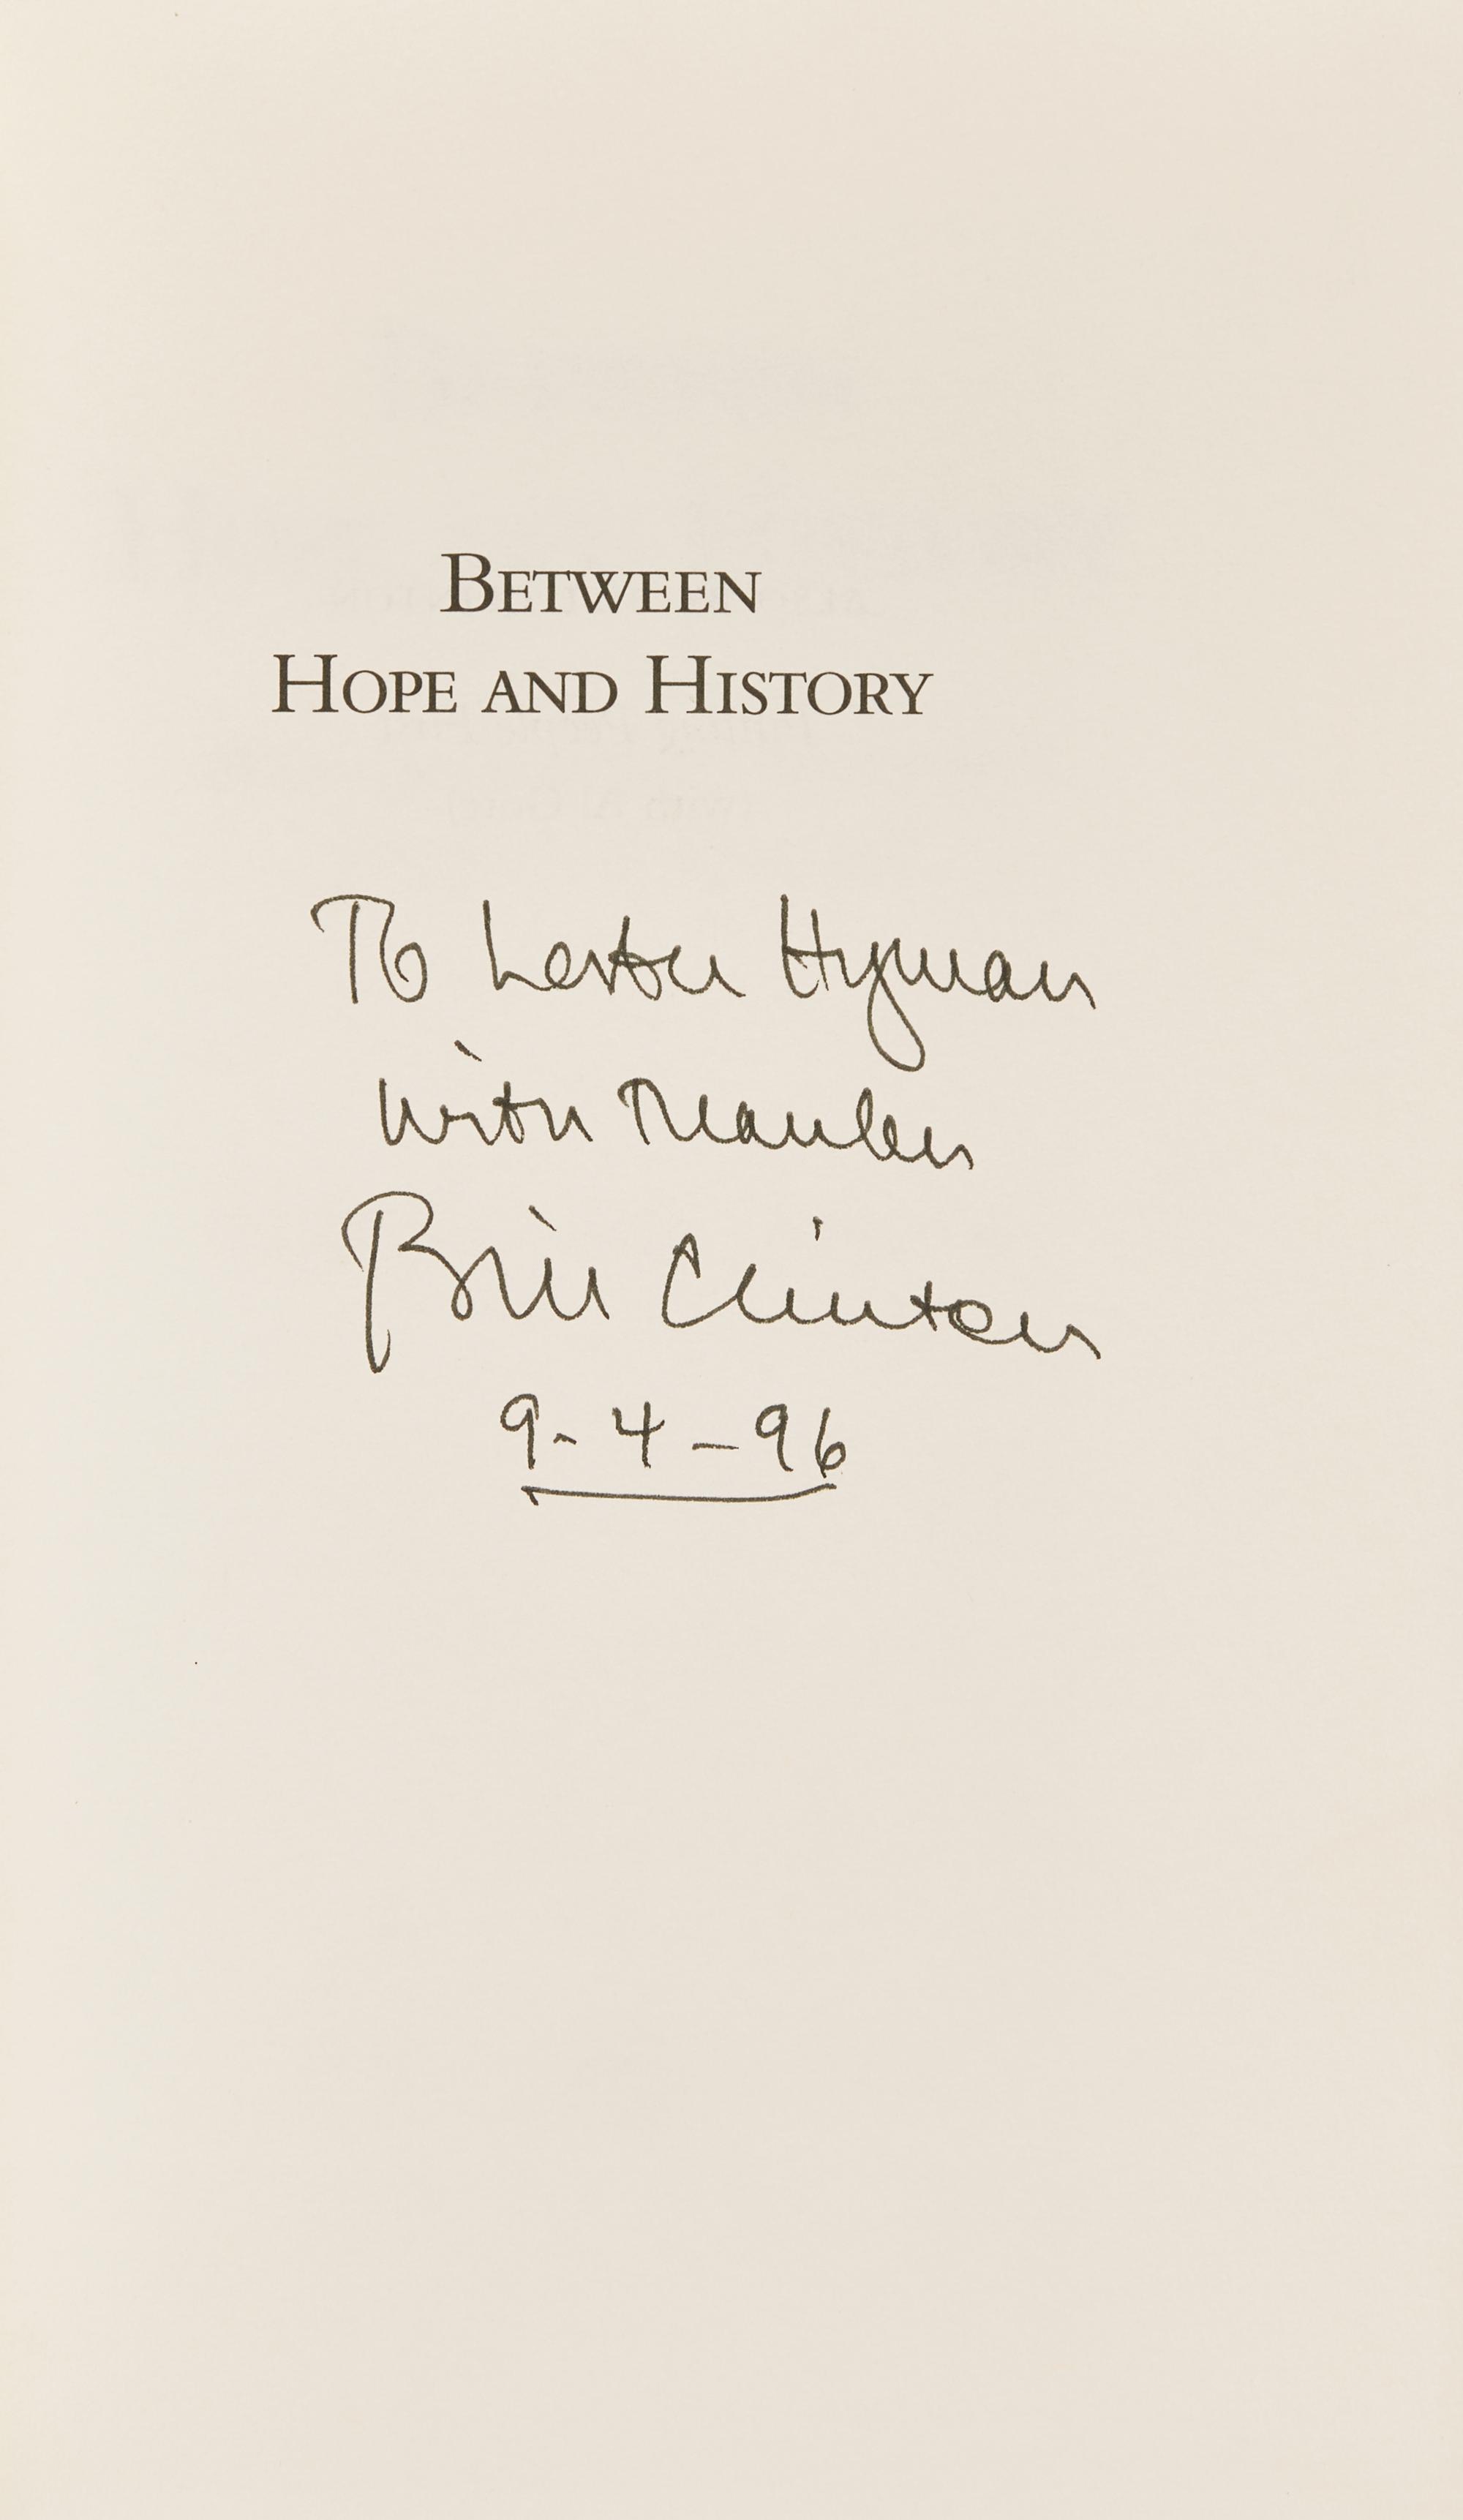 BETWEEN
HOPE AND HISTORY
To Lester Hyman
with Thanks
Bill Clinton
9-4-96